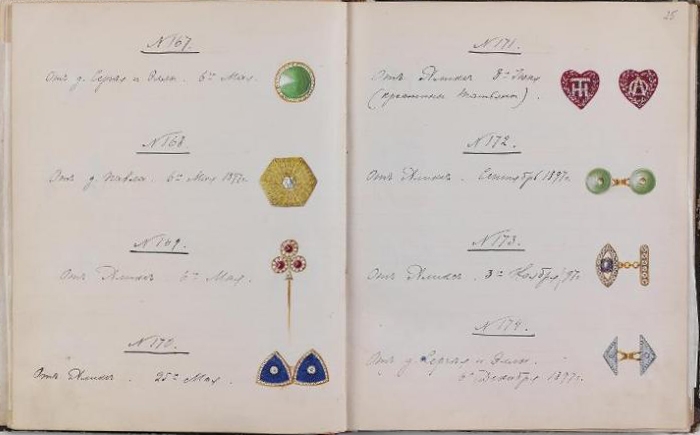 N 167.
Отъ д. Сергѣя и Эллы. 6го Мая.
N 168.
Отъ д. Павла. 6го Мая 1897г.
N 169.
Отъ Аликсъ 6го Мая.
N 170.
Отъ Аликсъ. 25го Мая.
25
N 171.
Отъ Аликсъ 8го Іюня
(крестины Татьяны).
N 172.
Отъ Аликсъ. Сентябрь 1897г.
N 173.
Отъ Аликсъ. 3го Ноября/97г.
N 174.
Отъ д. Сергѣя и Эллы.
6го Декабря 1897г.